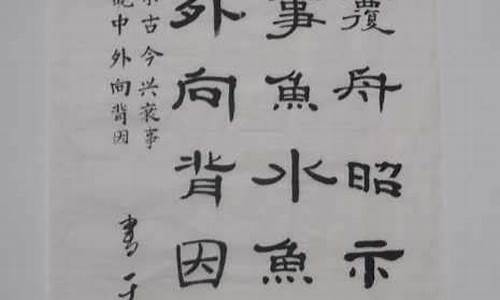 覆舟昭示
事魚水魚
外向背因
古今兴衰事
中外向背因
書